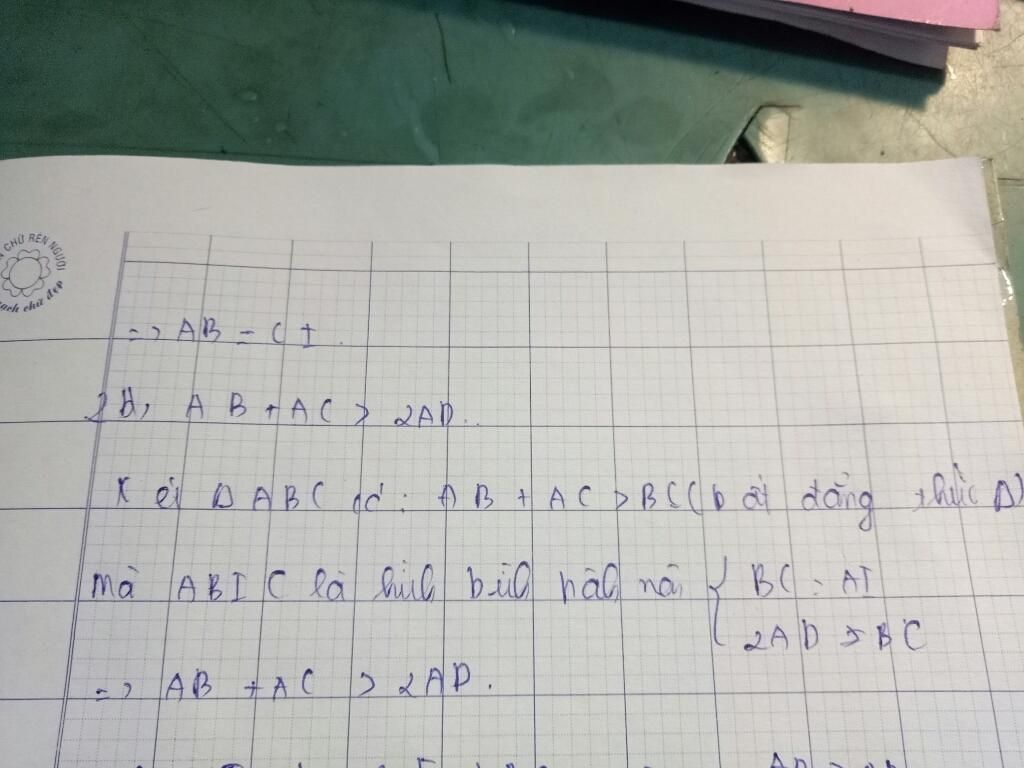 N CHỮ RÈN NGƯỜI
ạch chữ đẹp
=> AB = CI.
b, AB + AC > 2AD.
Xét Δ ABC có: AB + AC > BC (bất đẳng thức Δ)
mà ABIC là hình bình hành nên { BC = AI
2AD > BC
=> AB + AC > 2AD.